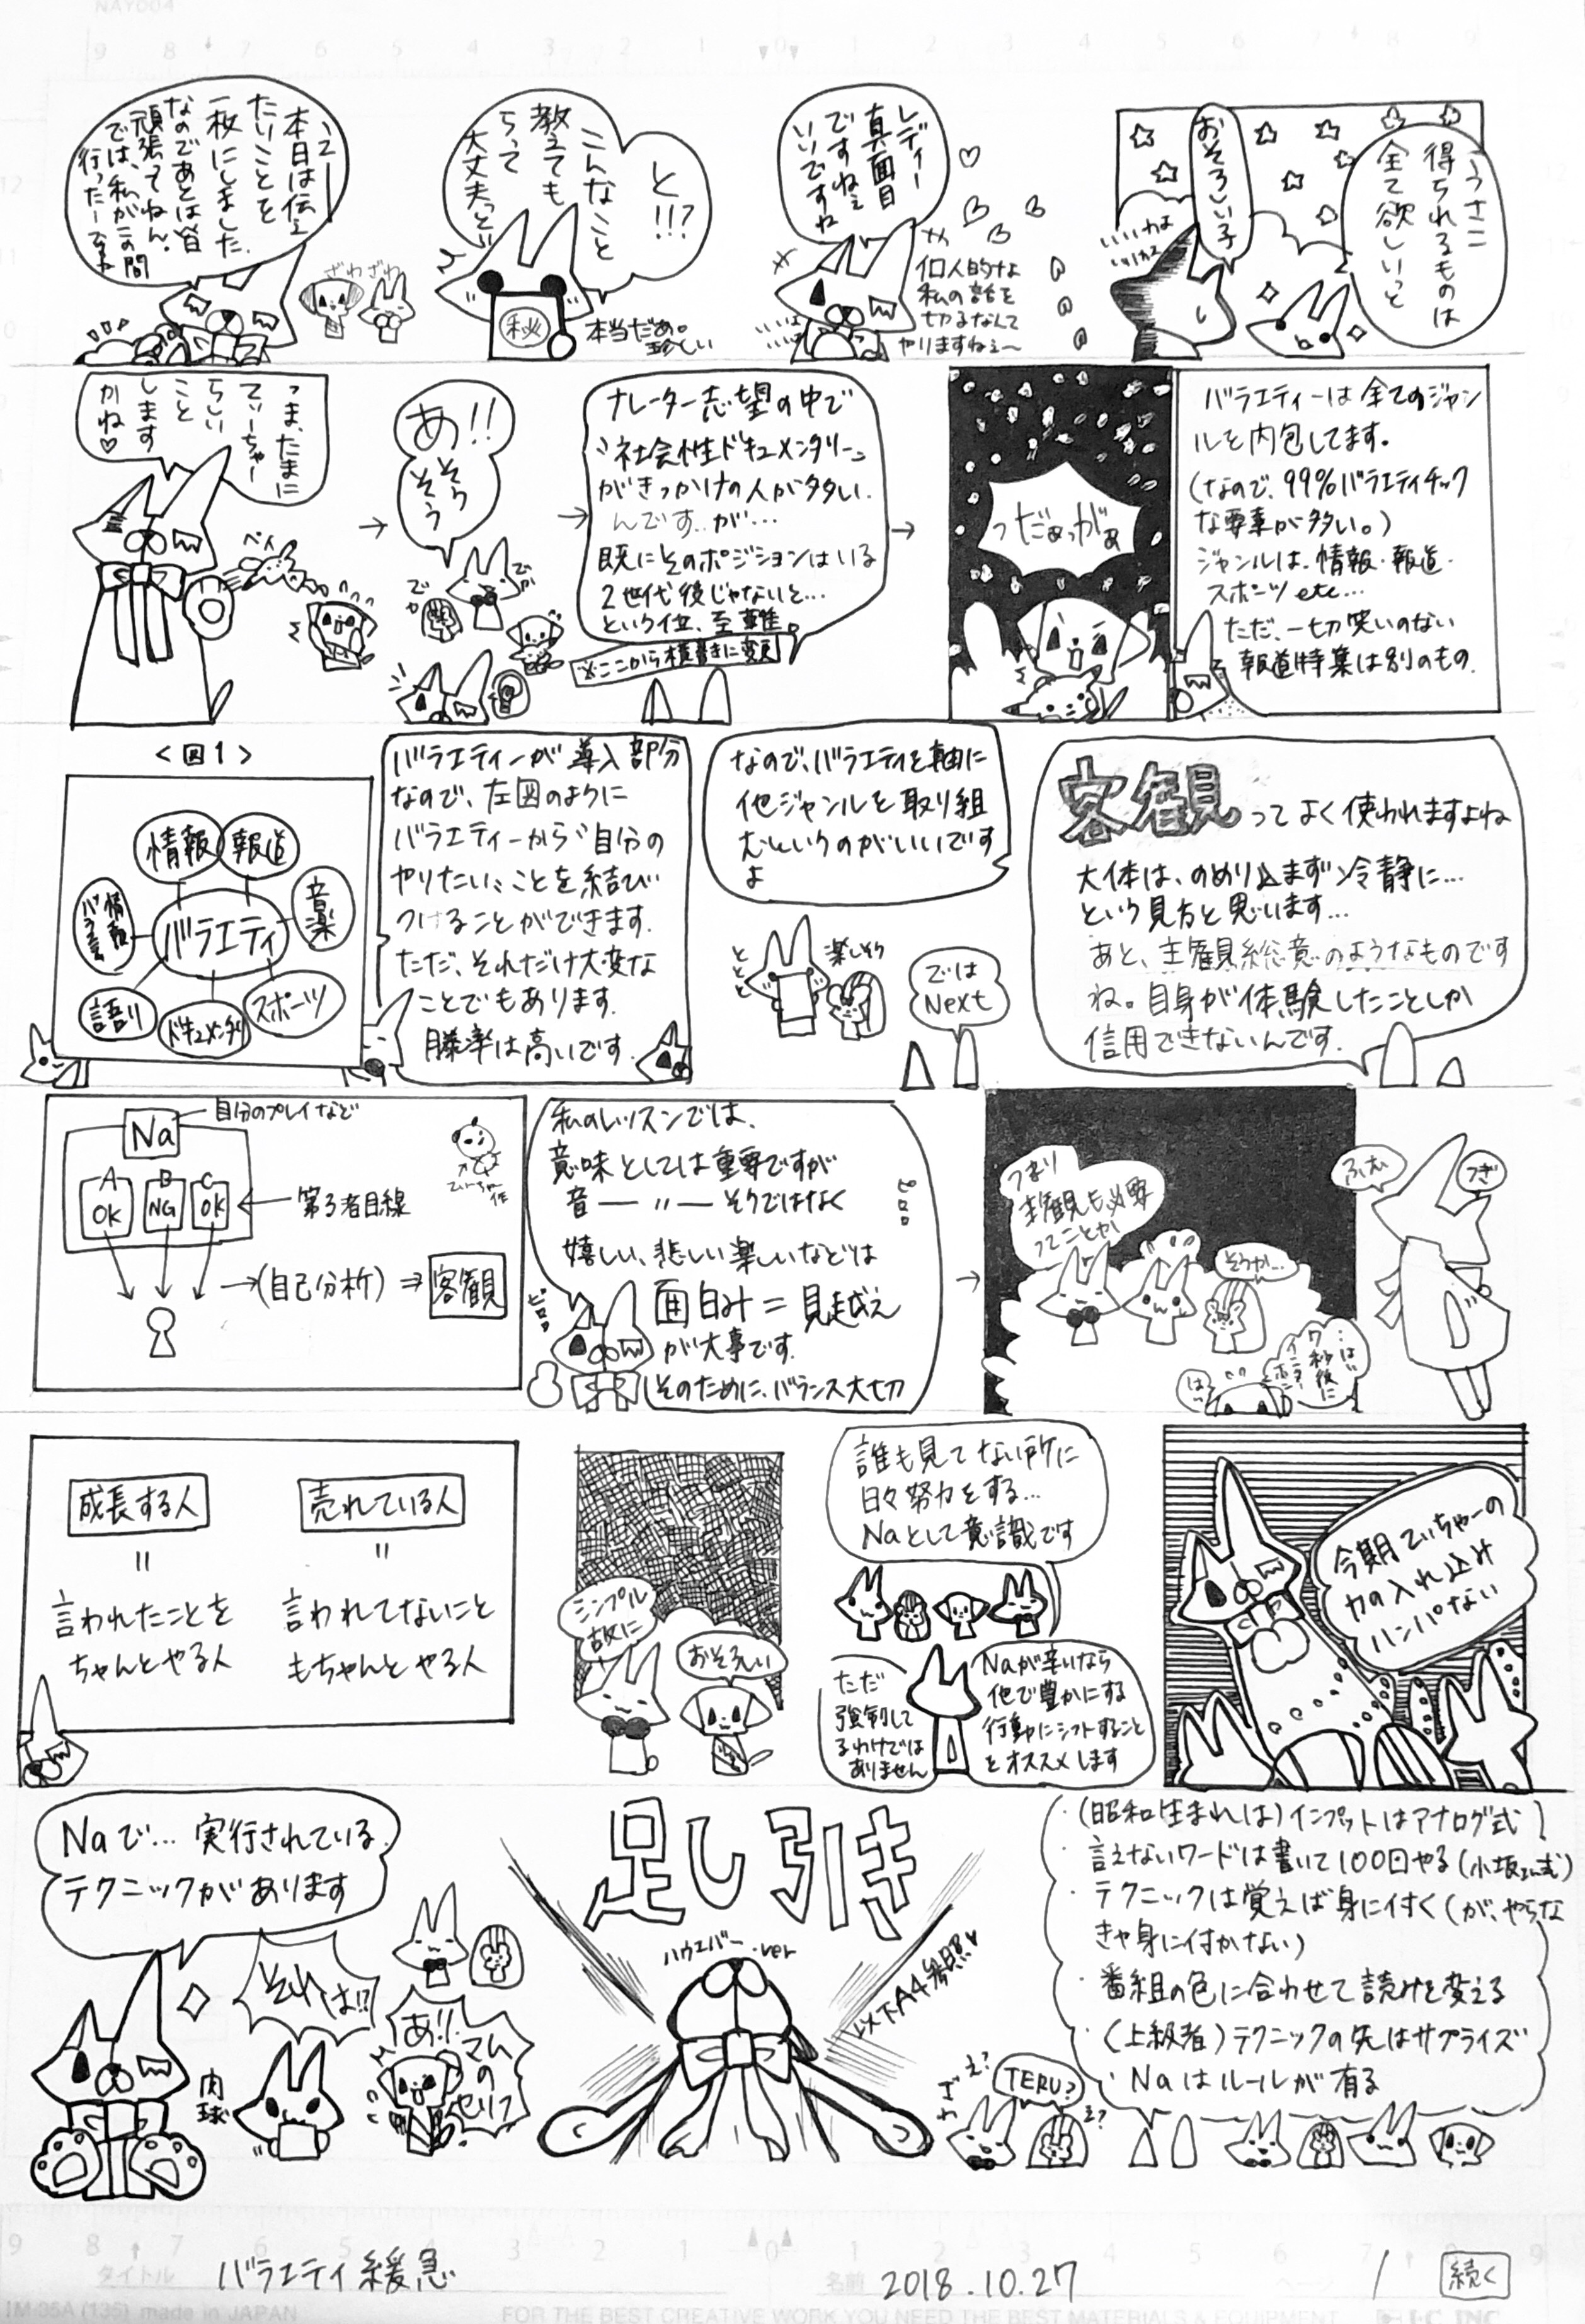 うさこ
得られるものは
全て欲しいっと
おそろしい子
いいわぁ
いいわぁ
レディー
真面目
ですねぇ
いいですね
個人的な
私の話を
切るなんて
やりますねぇ〜
いいは
と!!?
こんなこと
教えても
らって
大丈夫っと
秘
本当だぁ。
珍しい
本日は伝え
たいことを
一枚にしました
なのであとは皆
頑張ってねん。
では、私がこの間
行った
ざわざわ
っま、たまに
てぃーちゃー
らしい
こと
します
かね♡
ペイ
あ!!
そぅ
そぅ
→
でか
でか
→
ナレーター志望の中で
"社会性ドキュメンタリー"
がきっかけの人が多い
んです..が...
既にそのポジションはいる
2世代後じゃないと...
という位、至難。
※ここから横書きに変更
→
っだぁっがぁ
バラエティーは全てのジャン
ルを内包してます。
(なので、99%バラエティチック
な要素が多い。)
ジャンルは、情報・報道・
スポーツ etc...
ただ、一切笑いのない
報道特集は別のもの.
<図1>
情報
報道
音楽
情報
バラエティ
バラエティ
語り
ドキュメンタリ
スポーツ
バラエティーが導入部分
なので、左図のように
バラエティーから"自分の
やりたい"ことを結び
つけることができます.
ただ、それだけ大変な
ことでもあります.
勝率は高いです.
なので、バラエティを軸に
他ジャンルを取り組
むというのがいいです
よ
ととと
楽しそう
では
Next
客観ってよく使われますよね
大体は、のめり込まず冷静に...
という見方と思います...
あと、主観総意のようなものです
ね。自身が体験したことしか
信用できないんです.
Na
自分のプレイなど
A
OK
B
NG
C
OK
←第3者目線
→(自己分析)⇒客観
てぃーちゃー
作
私のレッスンでは、
意味としては重要ですが
音―〃―そうではなく
嬉しい、悲しい楽しいなどは
面白み=見越え
が大事です.
そのために、バランス大切
ピロロ
ピロロ
→
つまり
主観も必要
ってことか
そうか...
...はい
ワ秒後に
はっ
ふむ
つぎ
成長する人
=
言われたことを
ちゃんとやる人
売れている人
=
言われてないこと
もちゃんとやる人
シンプル
故に
おそろしい
誰も見てない所に
日々努力をする...
Naとして意識です
ただ
強制して
るわけでは
ありません
Naが辛いなら
他で豊かにする
行動にシフトすること
をオススメします
今期てぃちゃーの
力の入れ込み
ハンパない
Naで...実行されている
テクニックがあります
肉球
それは!!
あ!!
マムの
セリフ
足し引き
ハウエバー
.ver
以下A4参照♡
・(昭和生まれは)インプットはアナログ式
・言えないワードは書いて100回やる(小坂さん式)
・テクニックは覚えば身に付く(が、やらな
きゃ身に付かない)
・番組の色に合わせて読みを変える
・(上級者)テクニックの先はサプライズ
・Naはルールが有る
え?
TERU?
え?
バラエティ緩急
2018.10.27
1
続く
タイトル
名前
IM-35A (135) made in JAPAN
FOR THE BEST CREATIVE WORK YOU NEED THE BEST MATERIALS & EQUIPMENT